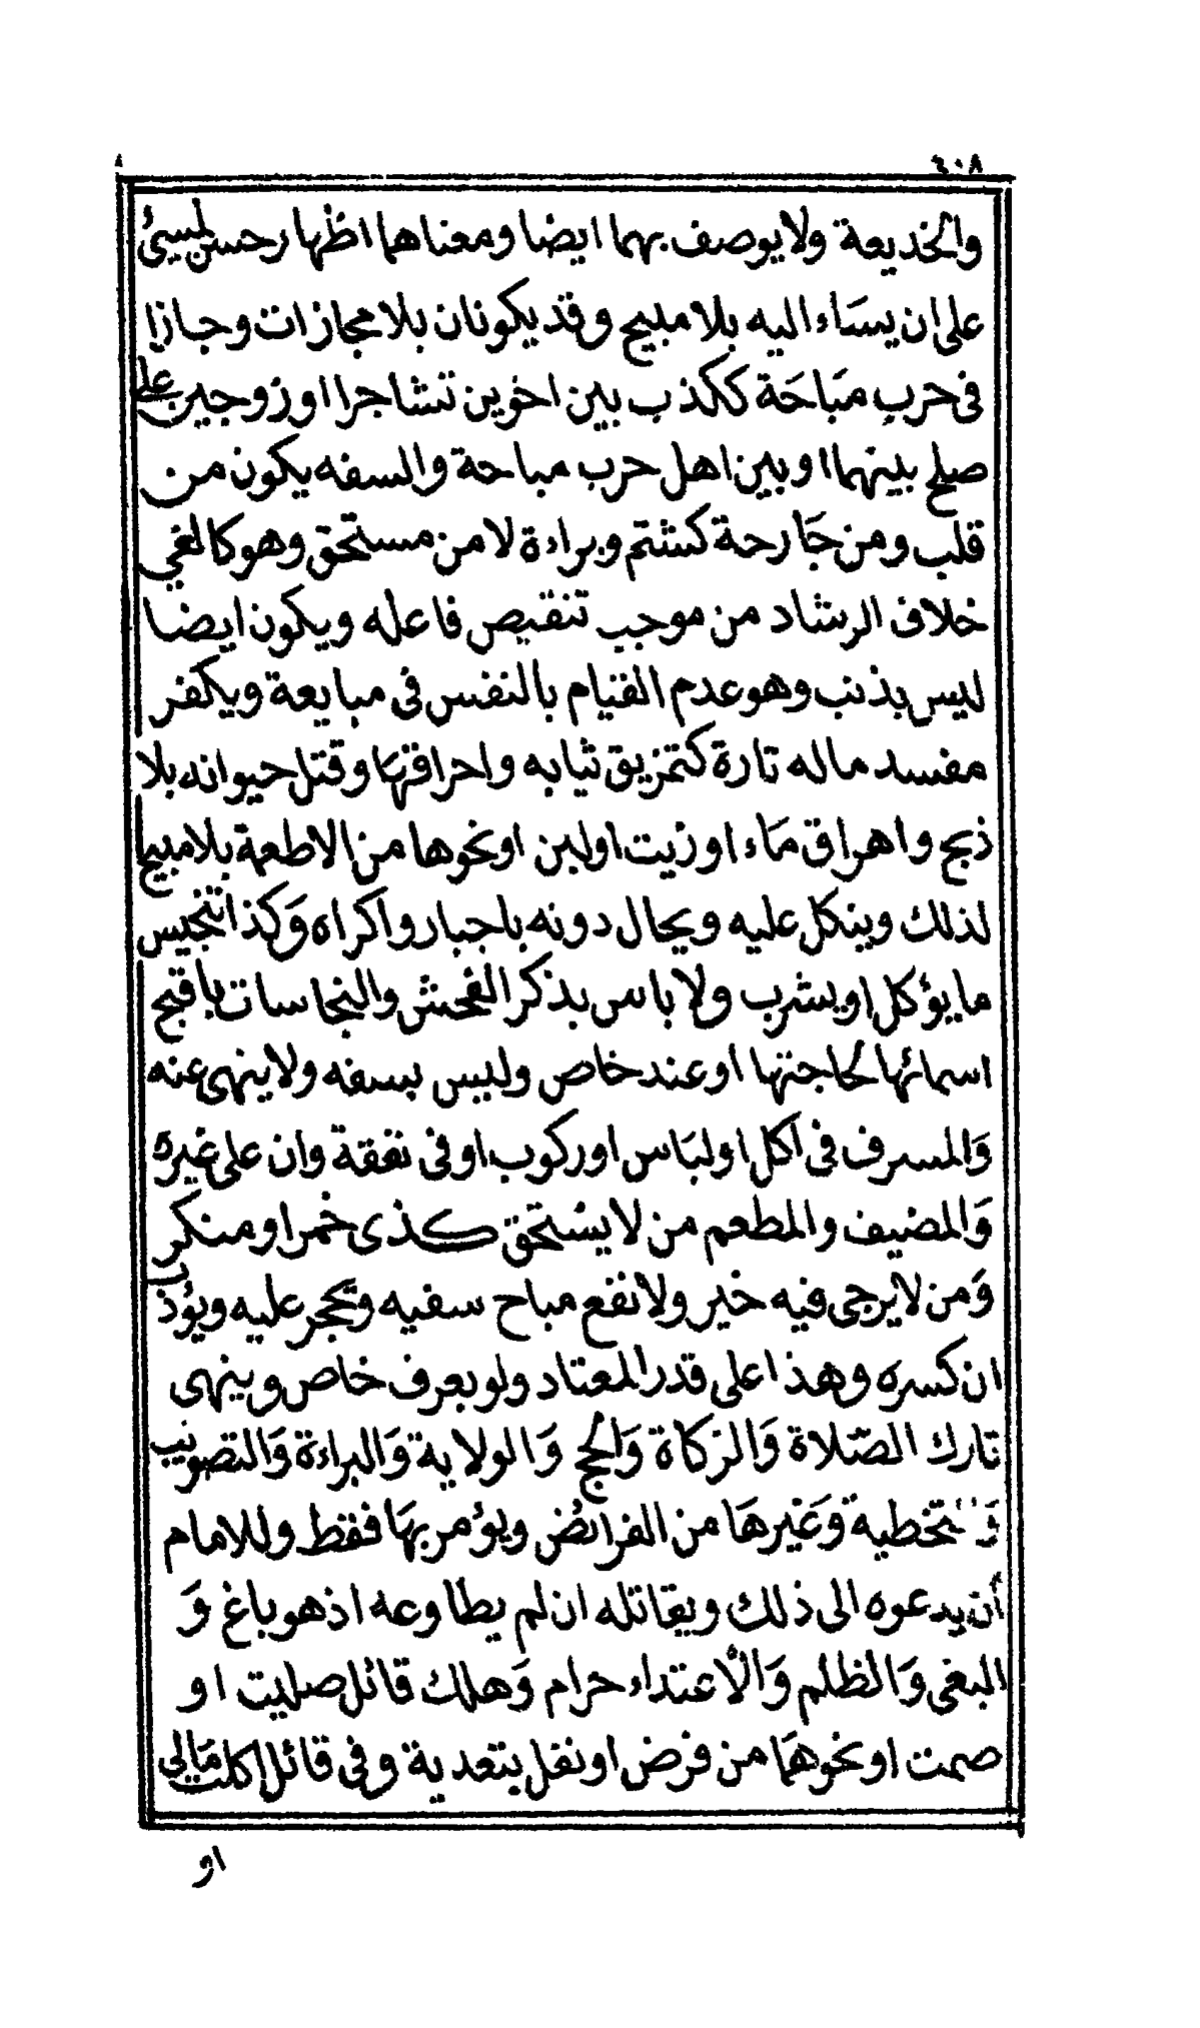 ٤٠٨
والخديعة ولا يوصف بهما ايضا ومعناهما اظهار حسن لمسيئ
على ان يساء اليه بلا مبيح وقد يكونان بلا مجازات وجازا
فى حرب مباحة ككذب بين اخوين تشاجرا او زوجين على
صلح بينهما او بين اهل حرب مباحة والسفه يكون من
قلب ومن جارحة كشتم وبراءة لا من مستحق وهو كالغي
خلاف الرشاد من موجب تنقيص فاعله ويكون ايضا
ليس بذنب وهو عدم القيام بالنفس فى مبايعة ويكفر
مفسد ماله تارة كتمزيق ثيابه واحراقها وقتل حيوانه بلا
ذبح واهراق ماء او زيت او لبن او نحوها من الاطعمة بلا مبيح
لذلك وينكل عليه ويحال دونه باجبار واكراه وكذا تنجيس
ما يؤكل او يشرب ولا باس بذكر الفحش والنجاسات باقبح
اسمائها لحاجتها او عند خاص وليس بسفه ولا ينهى عنه
والمسرف فى اكل او لباس او ركوب او فى نفقة وان على غيره
والمضيف والمطعم من لا يستحق كذى خمر او منكر
ومن لا يرجى فيه خير ولا نفع مباح سفيه ويحجر عليه ويؤذب
ان كسره وهذا على قدر المعتاد ولو بعرف خاص وينهى
تارك الصلاة والزكاة والحج والولاية والبراءة والتصويب
والتخطية وغيرها من الفرائض ويؤمر بها فقط وللامام
أن يدعوه الى ذلك ويقاتله ان لم يطاوعه اذ هو باغ و
البغى والظلم والأعتداء حرام وهلك قائل صليت او
صمت او نحوهما من فرض او نفل بتعدية وفى قائل اكلت مالى
او